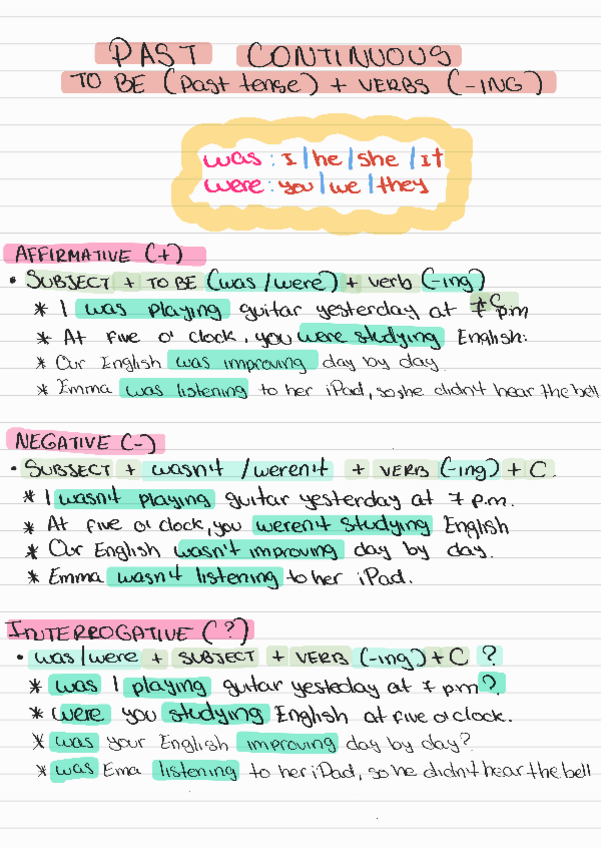 PAST CONTINUOUS
TO BE (Past tense) + VERBS (-ING)
was : I | he | she | It
were : you | we | they
AFFIRMATIVE (+)
• SUBJECT + TO BE (was / were) + verb (-ing)
+ C
* I was playing guitar yesterday at 7 pm
* At five o'clock, you were studying English.
* Our English was improving day by day.
* Emma was listening to her iPad, so she didn't hear the bell
NEGATIVE (-)
• SUBJECT + wasn't / weren't + VERB (-ing) + C.
* I wasn't playing guitar yesterday at 7 p.m.
* At five o'clock, you weren't studying English
* Our English wasn't improving day by day.
* Emma wasn't listening to her iPad.
INTERROGATIVE (?)
• was / were + SUBJECT + VERB (-ing) + C ?
* was I playing guitar yesteday at 7 pm?
* were you studying English at five o'clock.
* was your English improving day by day?
* was Ema listening to her iPad, so he didn't hear the bell